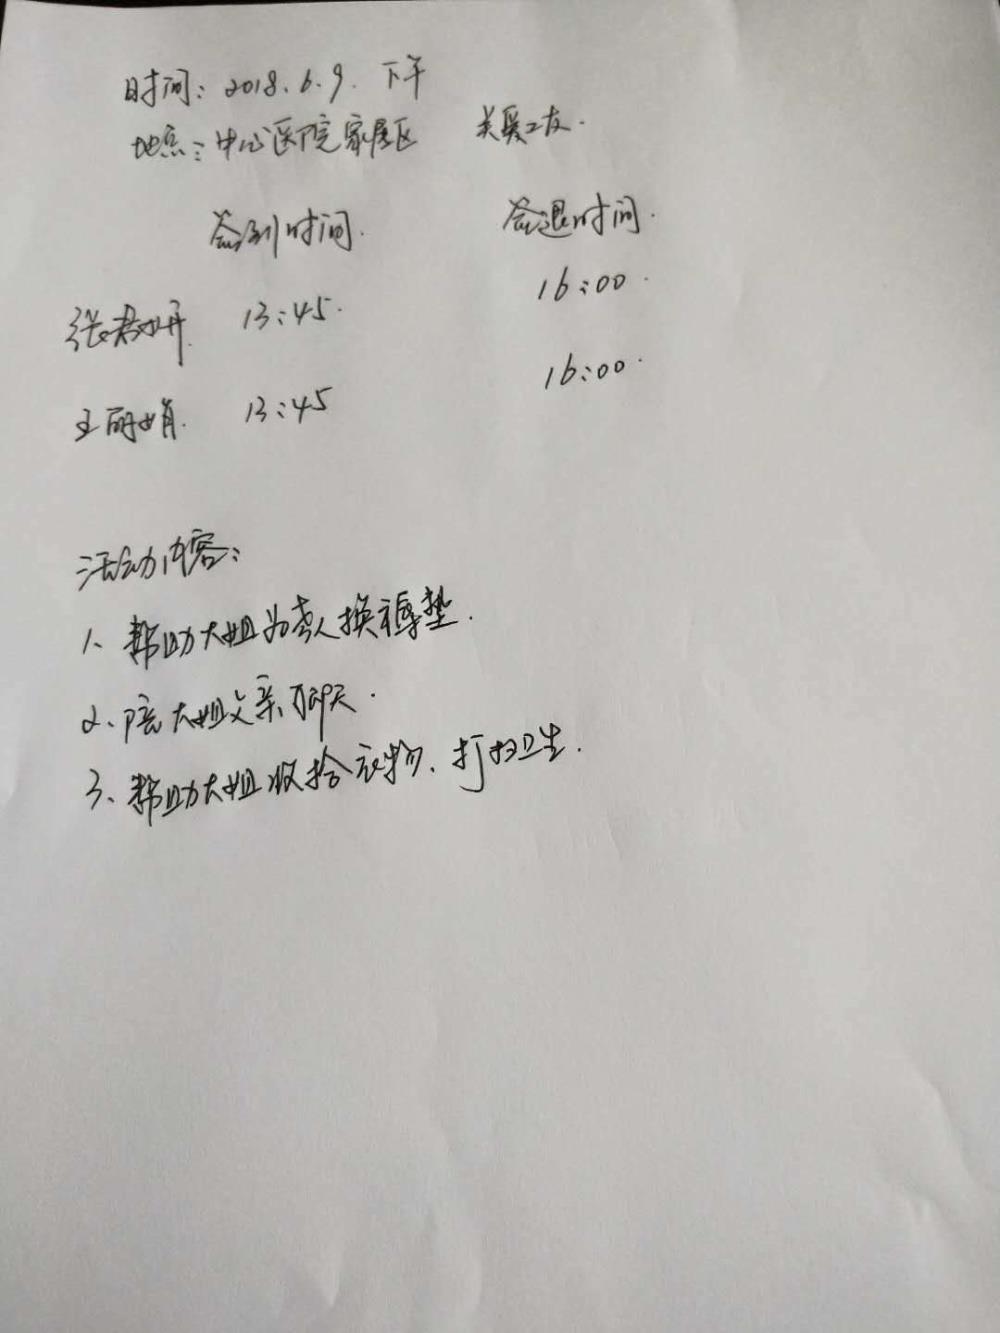 时间：2018.6.9.下午
地点：中心医院家属区 关爱工友.
签到时间. 签退时间.
张君妍 13:45. 16:00.
王丽娟. 13:45 16:00.
活动内容：
1、帮助大姐为老人换褥垫.
2、陪大姐父亲聊天.
3、帮助大姐收拾衣物、打扫卫生.